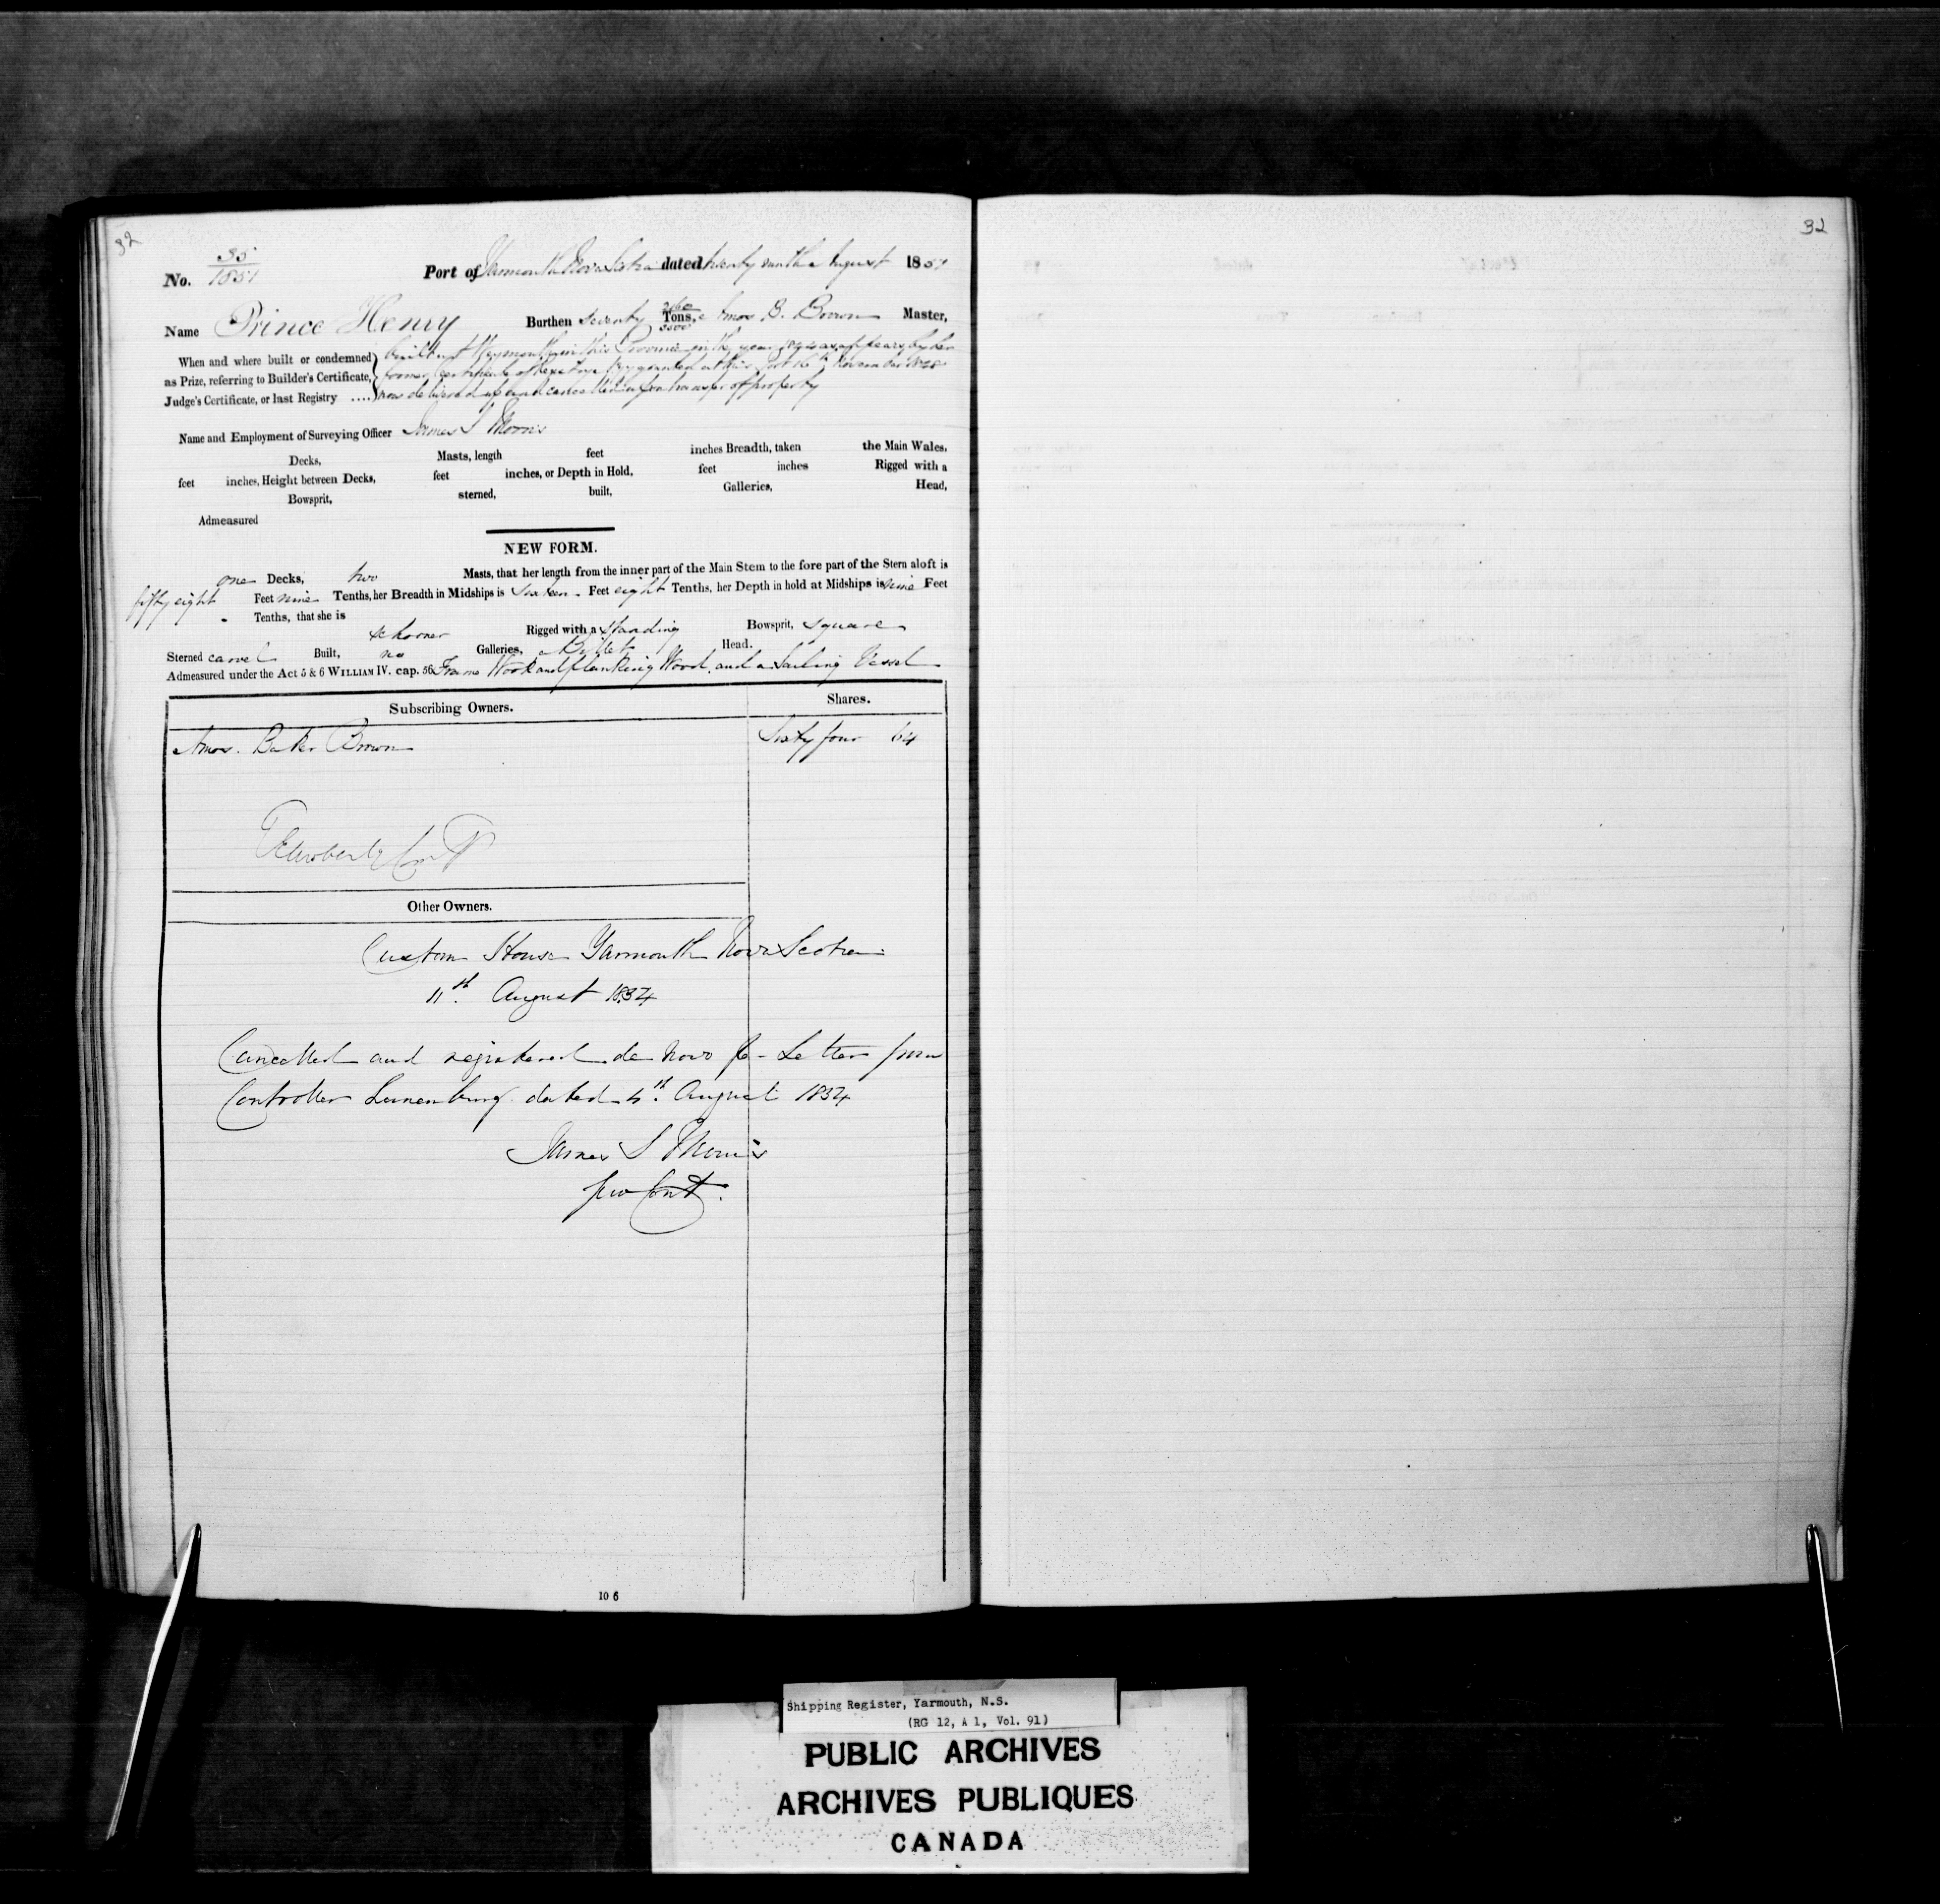 32
32
No. 35/1851 Port of Yarmouth Nova Scotia dated twenty ninth August 1851
Name Prince Henry Burthen seventy 2160/3500 Tons, Amos B. Brown Master,
When and where built or condemned as Prize, referring to Builder's Certificate, Judge's Certificate, or last Registry ....
built at Weymouth in this Province in the year as appears by her
former certificate of registry granted at this Port 16th November
now delivered up and cancelled on transfer of property
Name and Employment of Surveying Officer James S Morris
Decks, Masts, length feet inches Breadth, taken the Main Wales,
feet inches, Height between Decks, feet inches, or Depth in Hold, feet inches Rigged with a
Bowsprit, sterned, built, Galleries, Head,
Admeasured
NEW FORM.
one Decks, two Masts, that her length from the inner part of the Main Stem to the fore part of the Stern aloft is
fifty eight Feet nine Tenths, her Breadth in Midships is sixteen Feet eight Tenths, her Depth in hold at Midships is nine Feet
Tenths, that she is
schooner Rigged with a standing Bowsprit, square
Sterned carvel Built, no Galleries, Billet Head.
Admeasured under the Act 5 & 6 WILLIAM IV. cap. 56 Frame Wood and planking Wood and a Sailing Vessel
Subscribing Owners. Shares.
Amos Baker Brown Sixty four 64
Other Owners.
Custom House Yarmouth Nova Scotia
11th August 1834
Cancelled and registered de Novo pr Letter from
Controller Lunenburg dated 4th August 1834
James S Morris
10 6
Shipping Register, Yarmouth, N.S.
(RG 12, A 1, Vol. 91)
PUBLIC ARCHIVES
ARCHIVES PUBLIQUES
CANADA